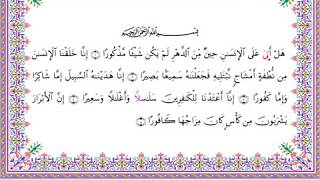 بِسْمِ اللَّهِ الرَّحْمَٰنِ الرَّحِيمِ
هَلْ أَتَىٰ عَلَى الْإِنْسَٰنِ حِينٌ مِّنَ الدَّهْرِ لَمْ يَكُن شَيْئًا مَّذْكُورًا ۝ إِنَّا خَلَقْنَا الْإِنسَٰنَ
مِن نُّطْفَةٍ أَمْشَاجٍ نَّبْتَلِيهِ فَجَعَلْنَٰهُ سَمِيعًا بَصِيرًا ۝ إِنَّا هَدَيْنَٰهُ السَّبِيلَ إِمَّا شَاكِرًا
وَإِمَّا كَفُورًا ۝ إِنَّا أَعْتَدْنَا لِلْكَٰفِرِينَ سَلَٰسِلَا وَأَغْلَٰلًا وَسَعِيرًا ۝ إِنَّ الْأَبْرَارَ
يَشْرَبُونَ مِن كَأْسٍ كَانَ مِزَاجُهَا كَافُورًا ۝